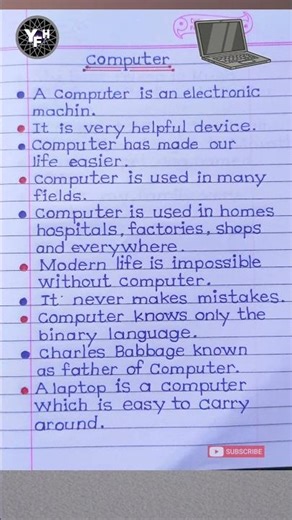 YFH
Computer
A Computer is an electronic
machin.
It is very helpful device.
Computer has made our
life easier.
Computer is used in many
fields.
Computer is used in homes
hospitals, factories, shops
and everywhere.
Modern life is impossible
without computer.
It never makes mistakes.
Computer knows only the
binary language.
Charles Babbage known
as father of Computer.
A laptop is a computer
which is easy to carry
around.
SUBSCRIBE